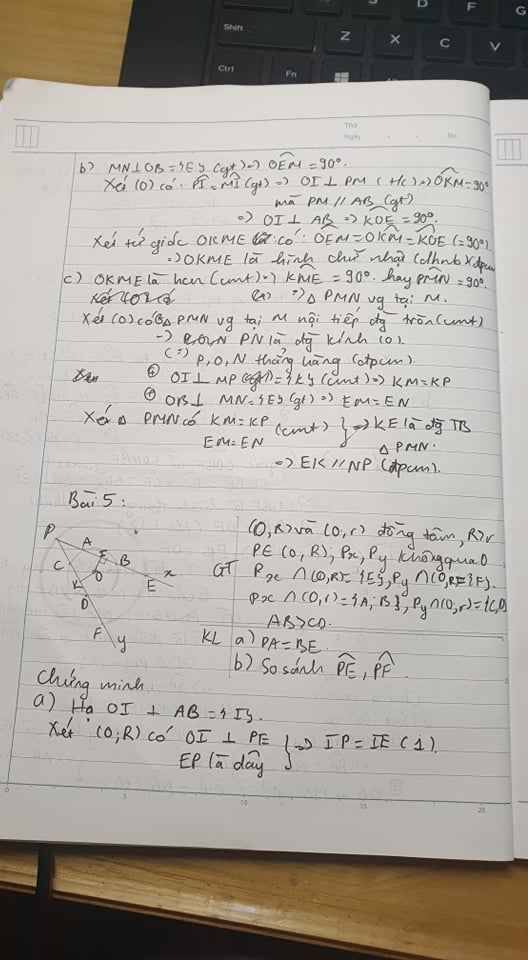 Shift
Z
X
C
V
D
F
G
Ctrl
Fn
Thứ
Ngày
No.
b) MN⊥OB={E} (gt)=> OÊM=90°.
Xét (O) có: PI=MI(gt) => OI⊥PM (t/c)=>OKM=90°
mà PM//AB (gt)
=> OI⊥AB => KOE=90°.
Xét tứ giác OKME có: OEM=OKM=KOE(=90°)
=>OKME là hình chữ nhật (dhnb)(đpcm)
c) OKME là hcn (cmt)=> KME=90°. hay PMN=90°.
=> △PMN vg tại M.
Xét (O) có △PMN vg tại M nội tiếp đg tròn(cmt)
=> PN là đg kính (O).
(=> P,O,N thẳng hàng (đpcm).
+ OI⊥MP={K}(cmt)=> KM=KP
+ OB⊥MN={E}(gt) => EM=EN
Xét △PMN có KM=KP (cmt) } => KE là đg TB
EM=EN △PMN.
=> EK//NP (đpcm).
Bài 5:
P A B E x
C K O I
D
F y
GT
(O,R) và (O,r) đồng tâm, R>r
P∈(O,R), Px, Py không qua O
Px∩(O,R)={E}, Py∩(O,R)={F}.
Px∩(O,r)={A;B}, Py∩(O,r)={C,D}
AB>CD.
KL a) PA=BE.
b) So sánh PE, PF.
Chứng minh
a) Hạ OI⊥AB={I}.
Xét (O;R) có OI⊥PE } => IP=IE (1).
EP là dây
0 5 10 15 20